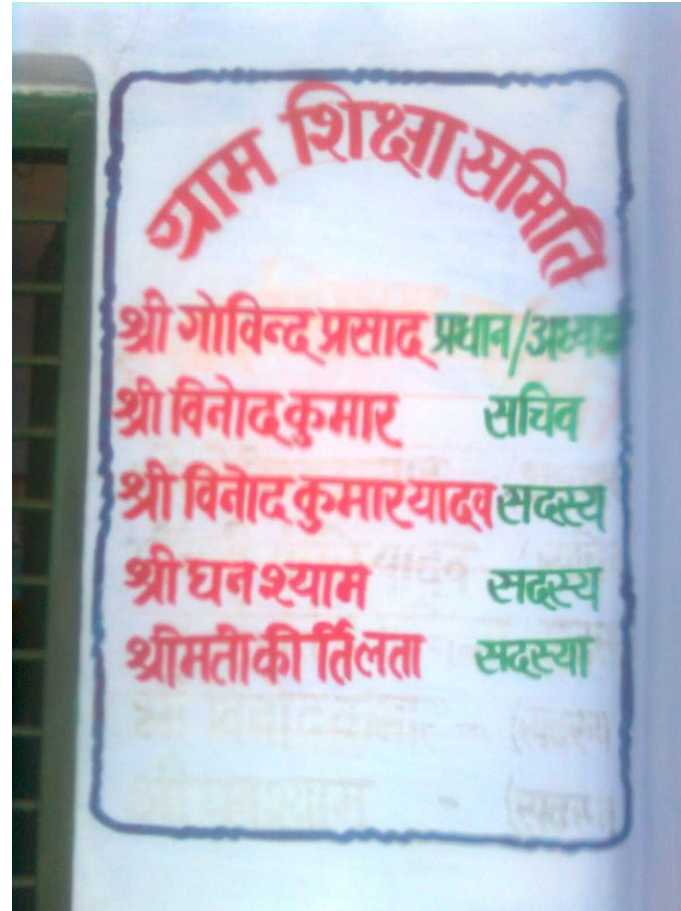 ग्राम शिक्षा समिति
श्री गोविन्द प्रसाद प्रधान/अध्यक्ष
श्री विनोद कुमार सचिव
श्री विनोद कुमार यादव सदस्य
श्री घनश्याम सदस्य
श्रीमती कीर्तिलता सदस्या